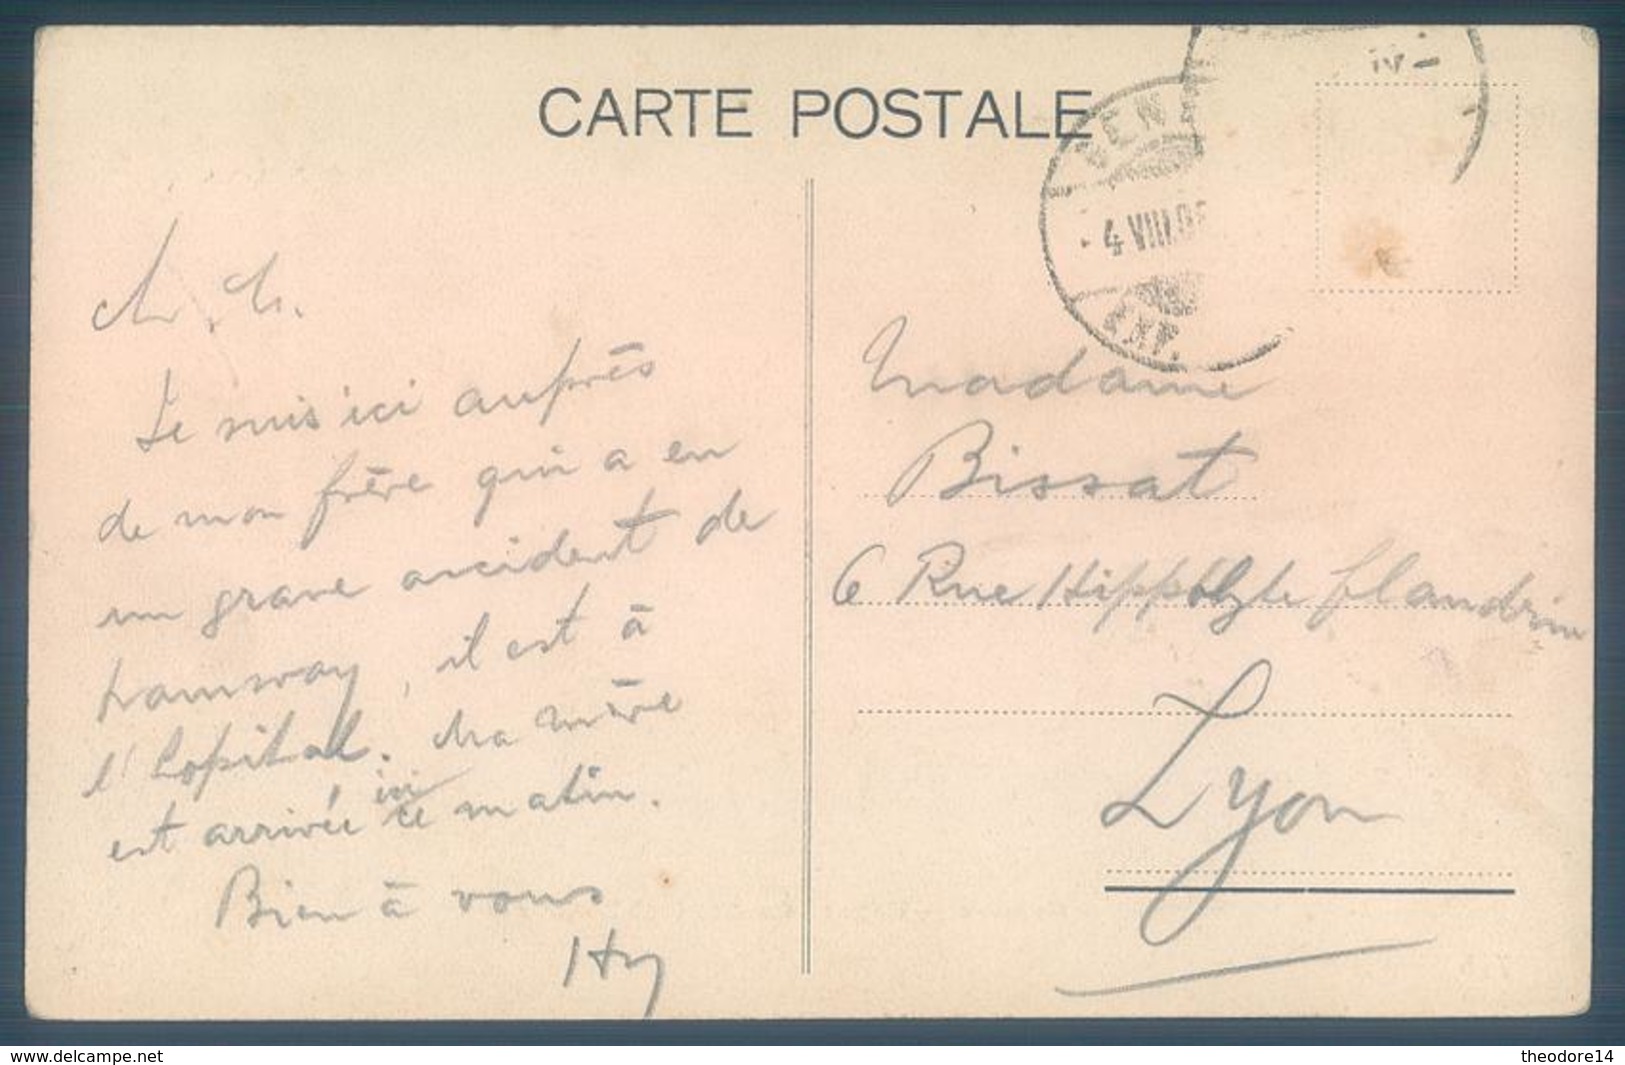 CARTE POSTALE
4 VIII.0
EXP.
Je suis ici auprès
de mon frère qui a eu
un grave accident de
tramway, il est à
l'hopital. Ma mère
est arrivée ici ce matin.
Bien à vous
Hy
Madame
Bissat
6 Rue Hippolyte flandrin
Lyon
www.delcampe.net
theodore14